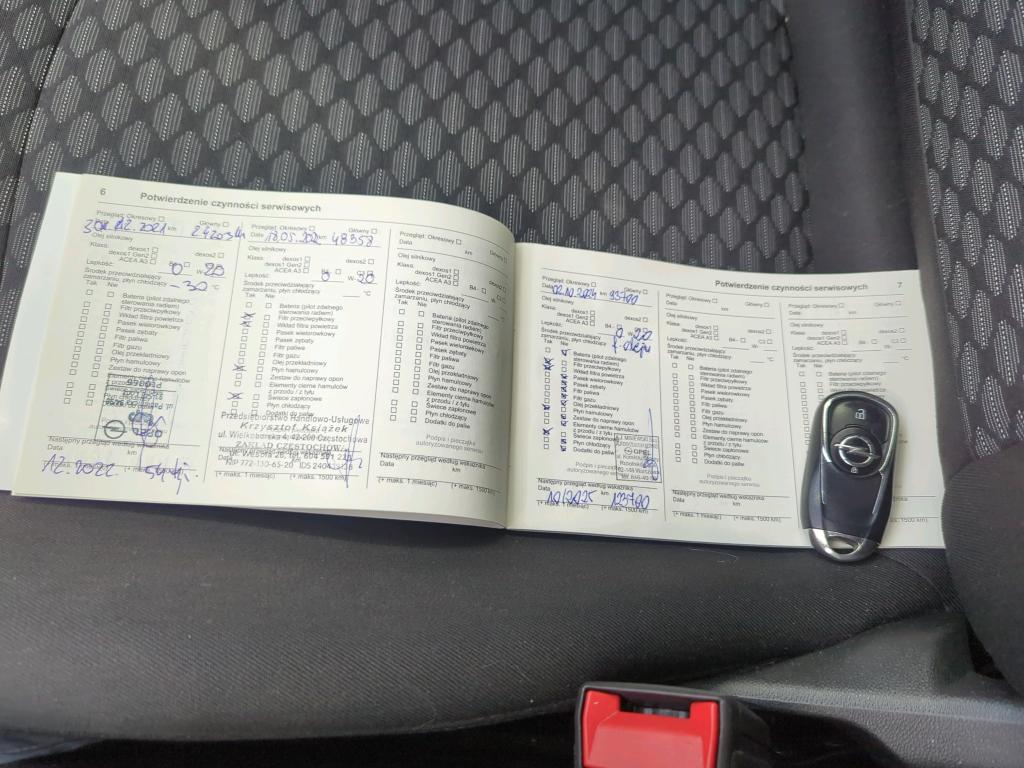 6 Potwierdzenie czynności serwisowych
Przegląd: Okresowy Główny
12.2021 km
Olej silnikowy
Klasa: dexos1 dexos2
dexos1 Gen2
ACEA A3 B4-
Lepkość: 0 W- 20
Środek przeciwdziałający
zamarzaniu, płyn chłodzący -30 °C
Tak Nie
Bateria (pilot zdalnego
sterowania radiem)
Filtr przeciwpyłkowy
Wkład filtra powietrza
Pasek wielorowkowy
Pasek zębaty
Filtr paliwa
Filtr gazu
Olej przekładniowy
Płyn hamulcowy
Zestaw do naprawy opon
Następny przegląd według wskaźnika
Data km
12.2022
(+ maks. 1 miesiąc) (+ maks. 1500 km)
Przegląd: Okresowy Główny
Data 18.05. km 48358
Olej silnikowy
Klasa: dexos1 dexos2
dexos1 Gen2
ACEA A3 B4- C3
Lepkość: 0 W-
Środek przeciwdziałający
zamarzaniu, płyn chłodzący °C
Tak Nie
Bateria (pilot zdalnego
sterowania radiem)
Filtr przeciwpyłkowy
Wkład filtra powietrza
Pasek wielorowkowy
Pasek zębaty
Filtr paliwa
Filtr gazu
Olej przekładniowy
Płyn hamulcowy
Zestaw do naprawy opon
Elementy cierne hamulców
z przodu / z tyłu
Świece zapłonowe
Płyn chłodzący
Dodatki do paliw
Przedsiębiorstwo Handlowo-Usługowe
Krzysztof Książek
42-200 Częstochowa
ZAKŁAD CZĘSTOCHOWA
(+ maks. 1 miesiąc) (+ maks. 1500 km)
Przegląd: Okresowy Główny
Data km
Olej silnikowy
Klasa: dexos1 dexos2
dexos1 Gen2
ACEA A3 B4- C3
Lepkość: W-
Środek przeciwdziałający
zamarzaniu, płyn chłodzący °C
Tak Nie
Bateria (pilot zdalnego
sterowania radiem)
Filtr przeciwpyłkowy
Wkład filtra powietrza
Pasek wielorowkowy
Pasek zębaty
Filtr paliwa
Filtr gazu
Olej przekładniowy
Płyn hamulcowy
Zestaw do naprawy opon
Elementy cierne hamulców
z przodu / z tyłu
Świece zapłonowe
Płyn chłodzący
Dodatki do paliw
Podpis i pieczątka
autoryzowanego serwisu
Następny przegląd według wskaźnika
Data km
(+ maks. 1 miesiąc) (+ maks. 1500 km)
Potwierdzenie czynności serwisowych 7
Przegląd: Okresowy Główny
Data 02.10.2024 km 93700
Olej silnikowy
Klasa: dexos1 dexos2
dexos1 Gen2
ACEA A3 B4-
Lepkość: 0 W- 20
Środek przeciwdziałający
zamarzaniu, płyn chłodzący
Tak Nie
Bateria (pilot zdalnego
sterowania radiem)
Filtr przeciwpyłkowy
Wkład filtra powietrza
Pasek wielorowkowy
Pasek zębaty
Filtr paliwa
Filtr gazu
Olej przekładniowy
Płyn hamulcowy
Zestaw do naprawy opon
Elementy cierne hamulców
z przodu / z tyłu
Świece zapłonowe
Płyn chłodzący
Dodatki do paliw
OPEL
Podpis i pieczątka
autoryzowanego serwisu
Następny przegląd według wskaźnika
Data 10/2025 km 123700
(+ maks. 1 miesiąc) (+ maks. 1500 km)
Przegląd: Okresowy Główny
Data km
Olej silnikowy
Klasa: dexos1 dexos2
dexos1 Gen2
ACEA A3 B4- C3
Lepkość: W-
Środek przeciwdziałający
zamarzaniu, płyn chłodzący °C
Tak Nie
Bateria (pilot zdalnego
sterowania radiem)
Filtr przeciwpyłkowy
Wkład filtra powietrza
Pasek wielorowkowy
Pasek zębaty
Filtr paliwa
Filtr gazu
Olej przekładniowy
Płyn hamulcowy
Zestaw do naprawy opon
Elementy cierne hamulców
z przodu / z tyłu
Świece zapłonowe
Płyn chłodzący
Dodatki do paliw
Podpis i pieczątka
autoryzowanego serwisu
Następny przegląd według wskaźnika
Data km
(+ maks. 1 miesiąc) (+ maks. 1500 km)
Przegląd: Okresowy Główny
Data km
Olej silnikowy
Klasa: dexos1 dexos2
dexos1 Gen2
ACEA A3
Lepkość:
Środek przeciwdziałający
zamarzaniu, płyn chłodzący
Tak Nie